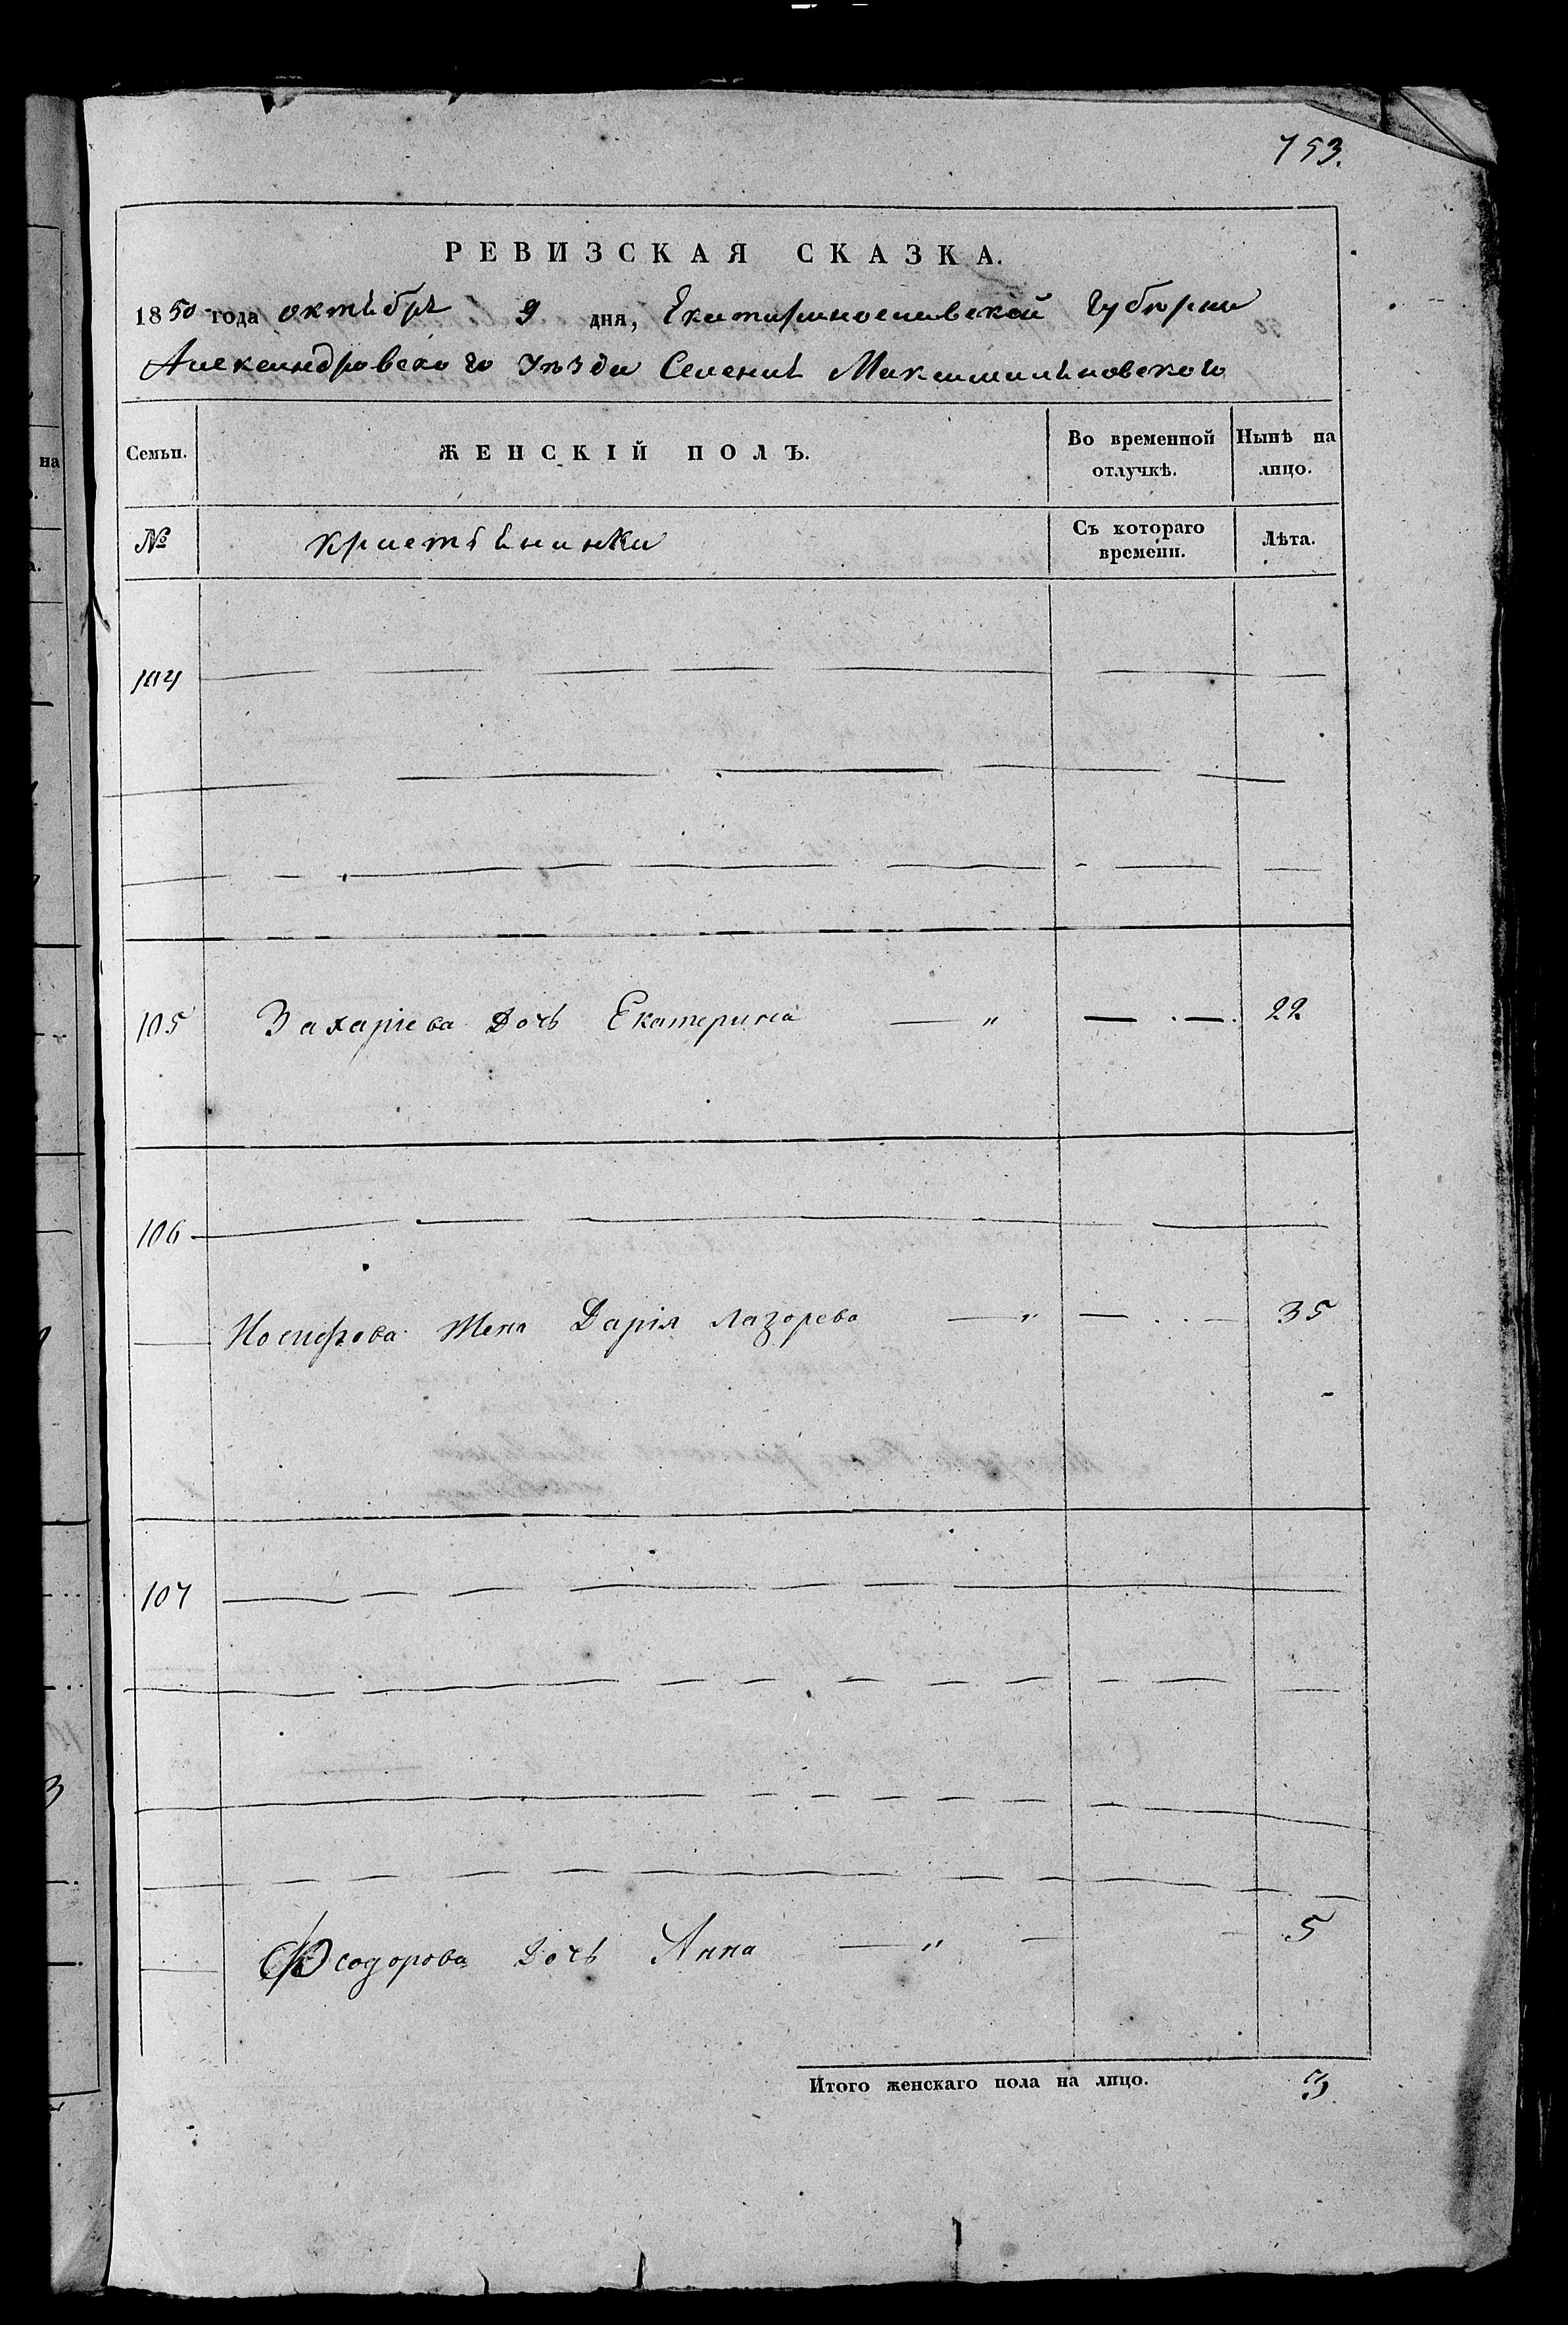 753.
РЕВИЗСКАЯ СКАЗКА.
1850 года октября 9 дня, Екатеринославской Губернии
Александровского Уѣзда Селения Максимильяновского
Семьи. ЖЕНСКІЙ ПОЛЪ. Во временной отлучкѣ. Нынѣ на лицо.
№ Крестьянинки Съ котораго времени. Лѣта.
104
105 Захаріева Дочь Екатерина — " — . — . 22
106
Иосифова Жена Дарія Лазорева — " — . . — 35
107
Феодорова Дочь Анна — " — — 5
Итого женскаго пола на лицо. 3